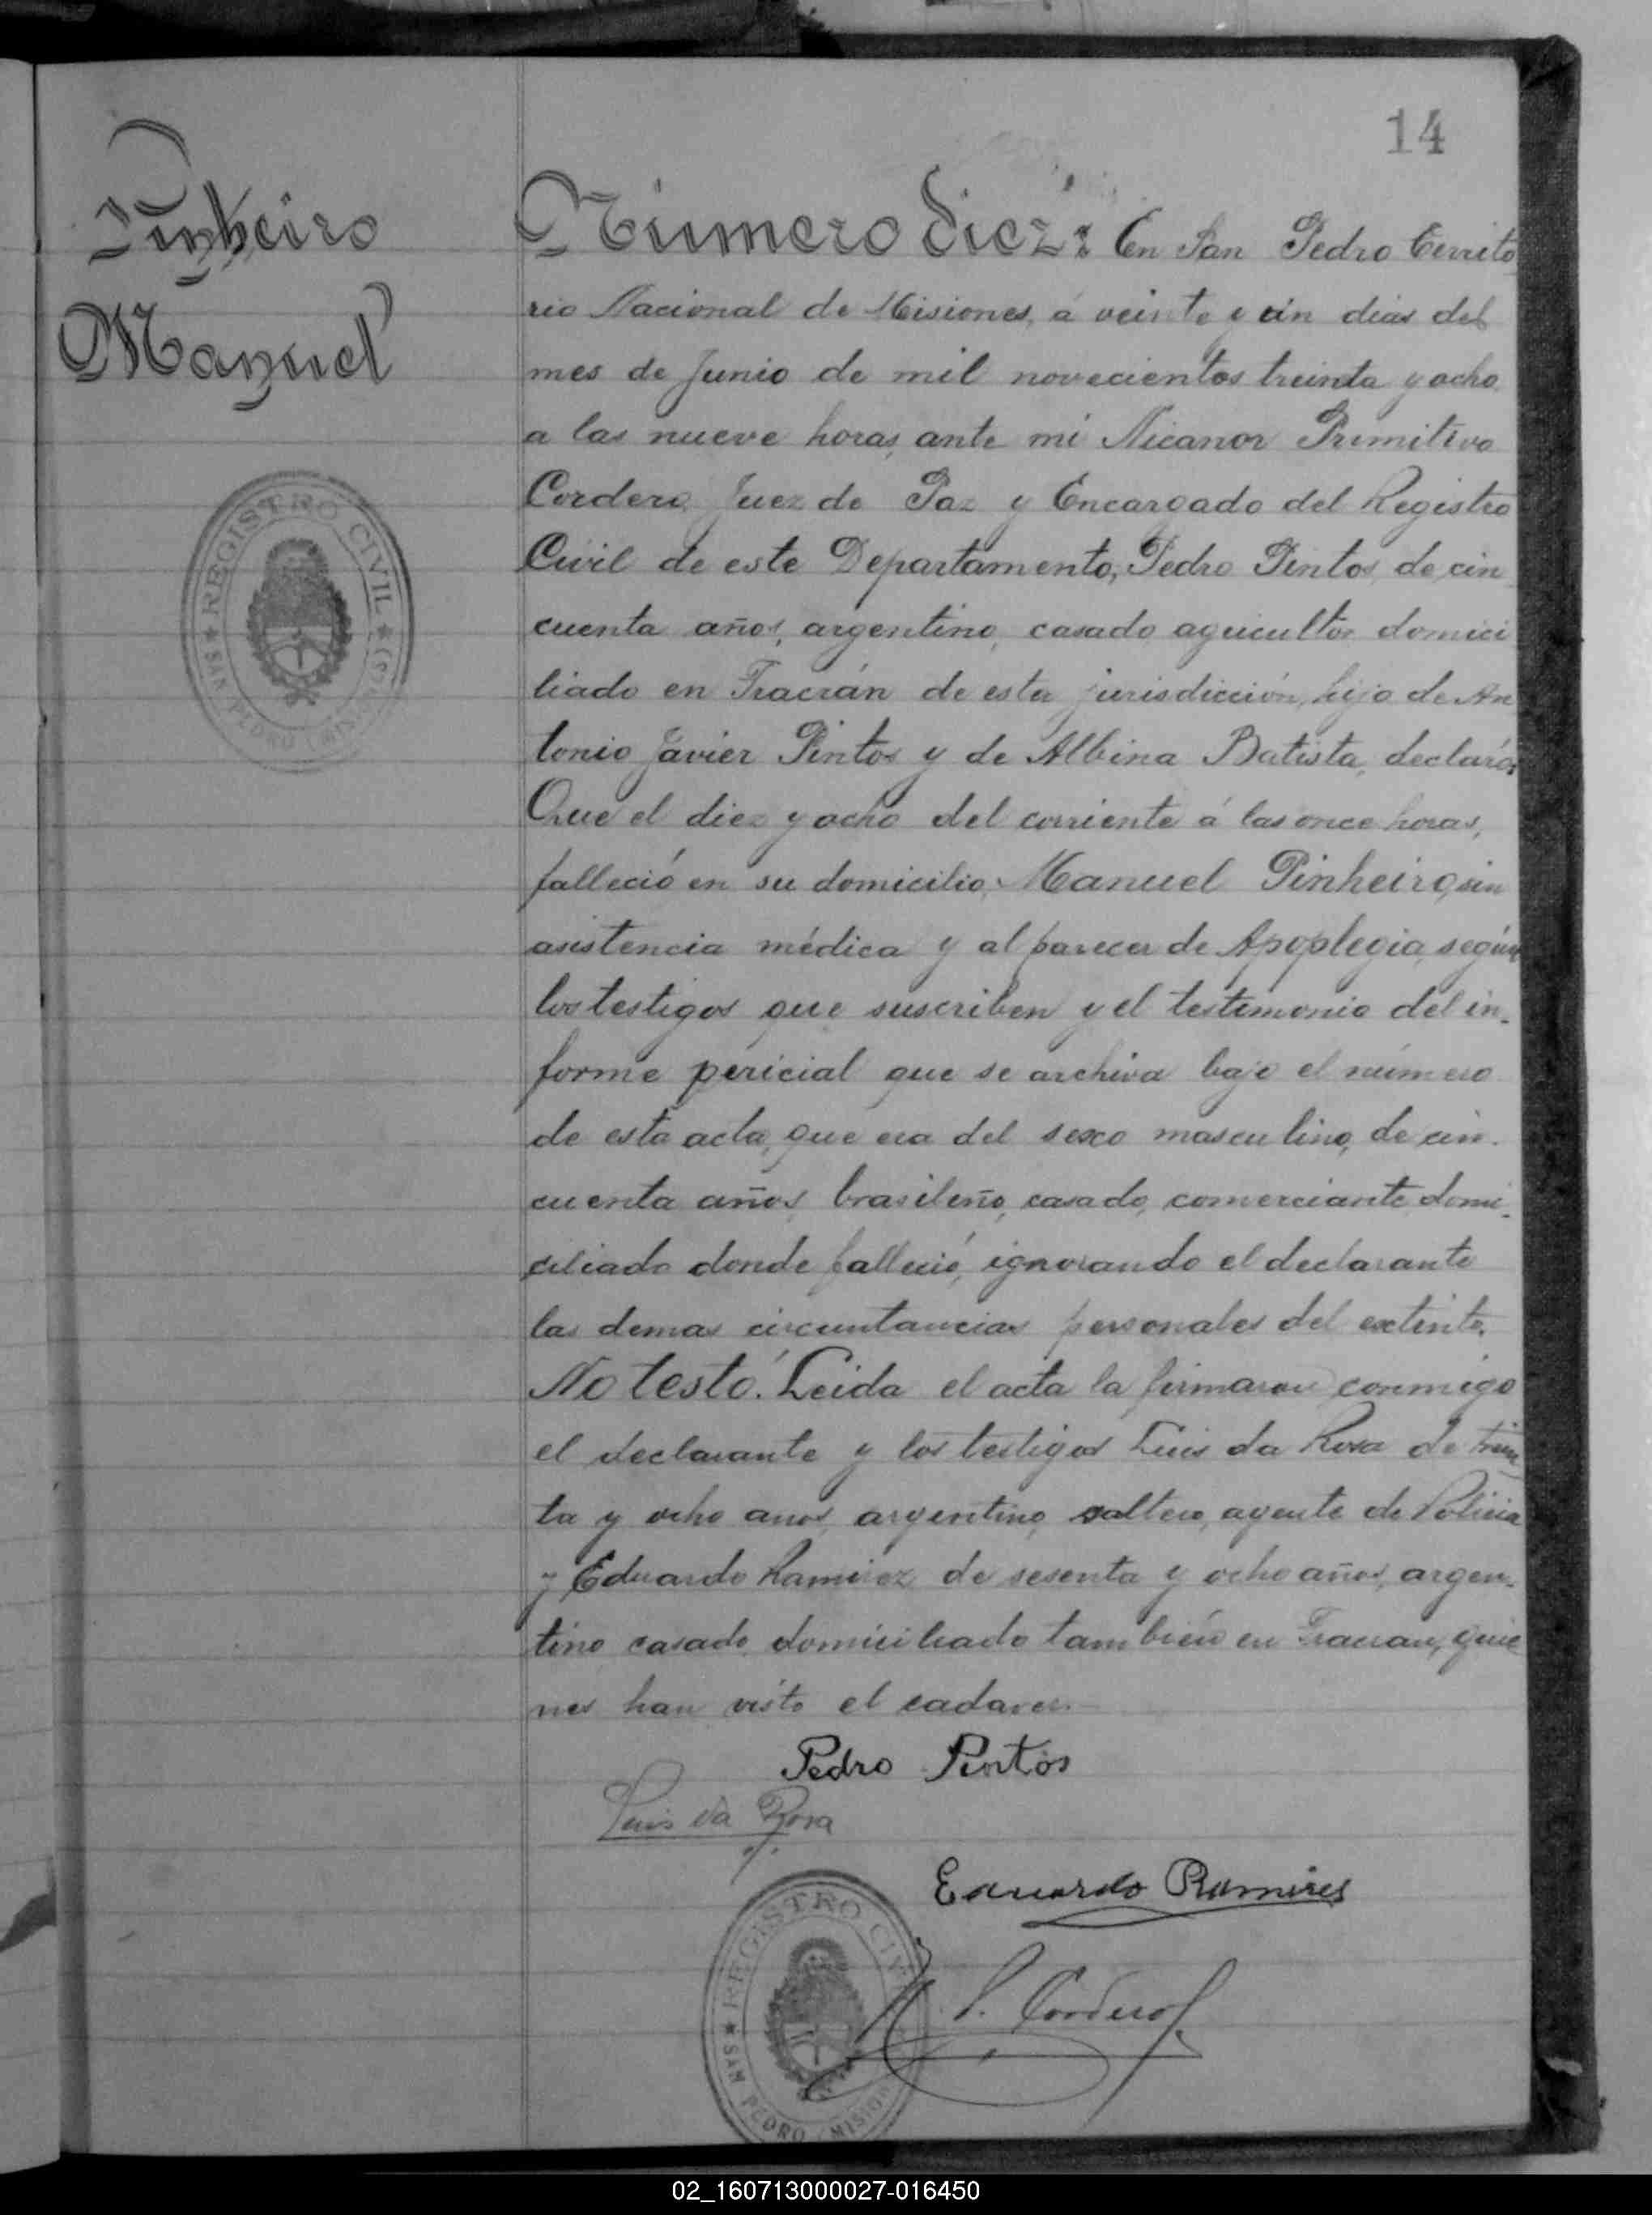 14
Pinheiro
Manuel
Número diez: En San Pedro Territo
rio Nacional de Misiones, á veinte y un dias del
mes de Junio de mil novecientos treinta y ocho
a las nueve horas, ante mi Nicanor Primitivo
Cordero, Juez de Paz y Encargado del Registro
Civil de este Departamento, Pedro Pintos, de cin
cuenta años, argentino, casado, agricultor domici
liado en Fracrán de esta jurisdicción, hijo de An
tonio Javier Pintos y de Albina Batista, declaró:
Que el diez y ocho del corriente á las once horas,
falleció en su domicilio, Manuel Pinheiro, sin
asistencia médica y al parecer de Apoplegia, según
los testigos que suscriben y el testimonio del in-
forme pericial que se archiva bajo el número
de esta acta, que era del sexo masculino, de cin-
cuenta años, brasileño, casado, comerciante, domi-
ciliado donde falleció, ignorando el declarante
las demas circuntancias personales del extinto.
No testó. Leida el acta la firmaron conmigo
el declarante y los testigos Luis da Rosa de trein
ta y ocho anos, argentino, soltero, agente de Policia
y Eduardo Ramirez de sesenta y ocho años, argen-
tino casado, domiciliado también en Fracran, quie
nes han visto el cadaver.
Pedro Pintos
Luis da Rosa
Eduardo Ramires
N. P. Cordero
REGISTRO CIVIL
SAN PEDRO (MISIONES)
REGISTRO CIVIL
SAN PEDRO (MISIONES)
02_160713000027-016450